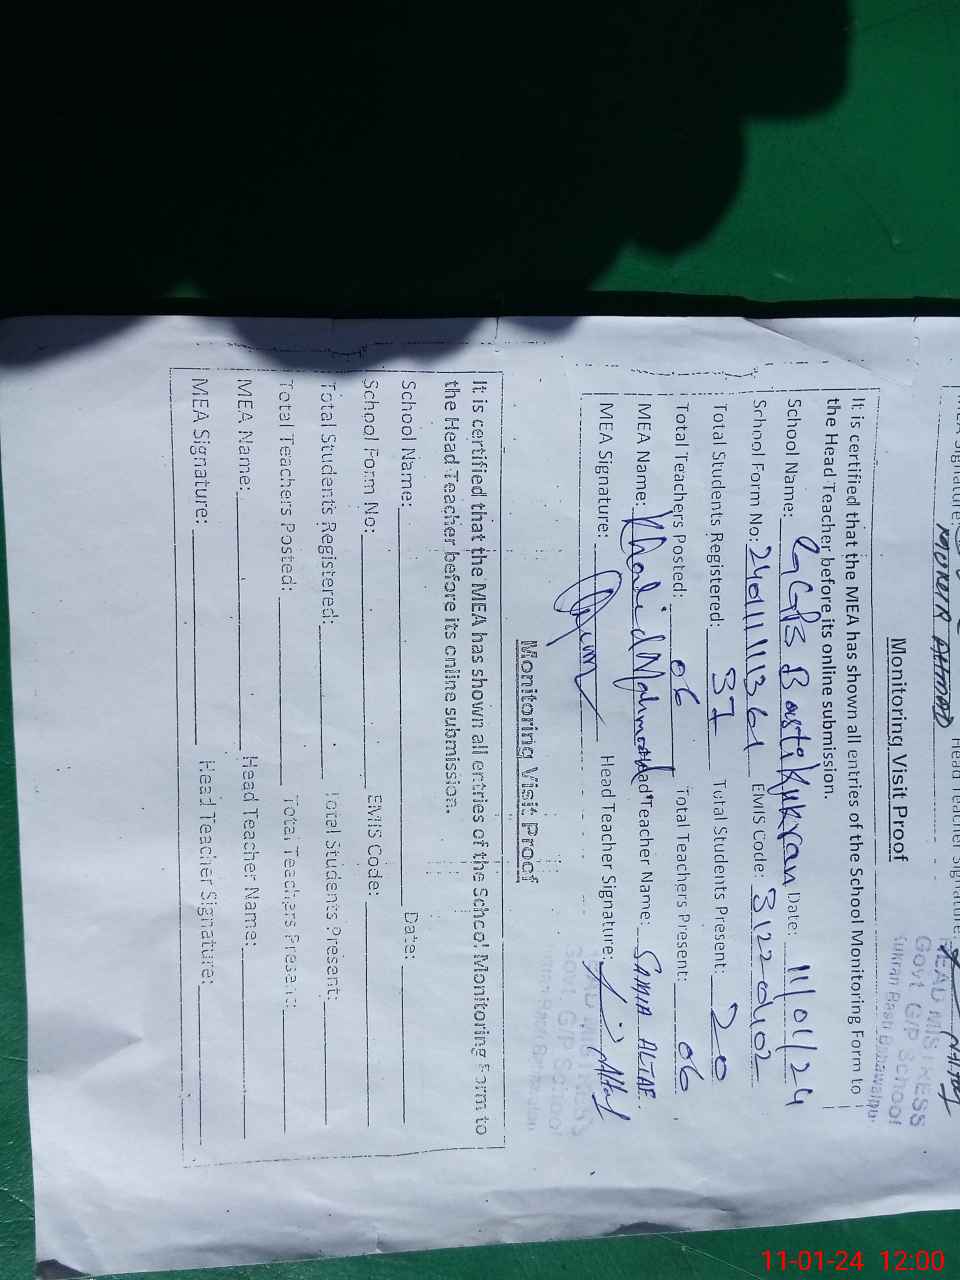 MEA Signature:
Head Teacher Signature:
MUNEER AHMAD
HEAD MISTRESS
Govt G/P School
Kukran Basti Bahawalpur
Monitoring Visit Proof
It is certified that the MEA has shown all entries of the School Monitoring Form to
the Head Teacher before its online submission.
School Name: GGPS Basti Kukran Date: 11/01/24
School Form No: EMIS Code:
Total Students Registered: 37 Total Students Present: 20
Total Teachers Posted: 06 Total Teachers Present: 06
MEA Name: Khalid Mahmood Head Teacher Name: SAMIA ALTAF
MEA Signature: Head Teacher Signature:
HEAD MISTRESS
Govt G/P School
Monitoring Visit Proof
It is certified that the MEA has shown all entries of the School Monitoring Form to
the Head Teacher before its online submission.
School Name: Date:
School Form No: EMIS Code:
Total Students Registered: Total Students Present:
Total Teachers Posted: Total Teachers Present:
MEA Name: Head Teacher Name:
MEA Signature: Head Teacher Signature:
11-01-24 12:00